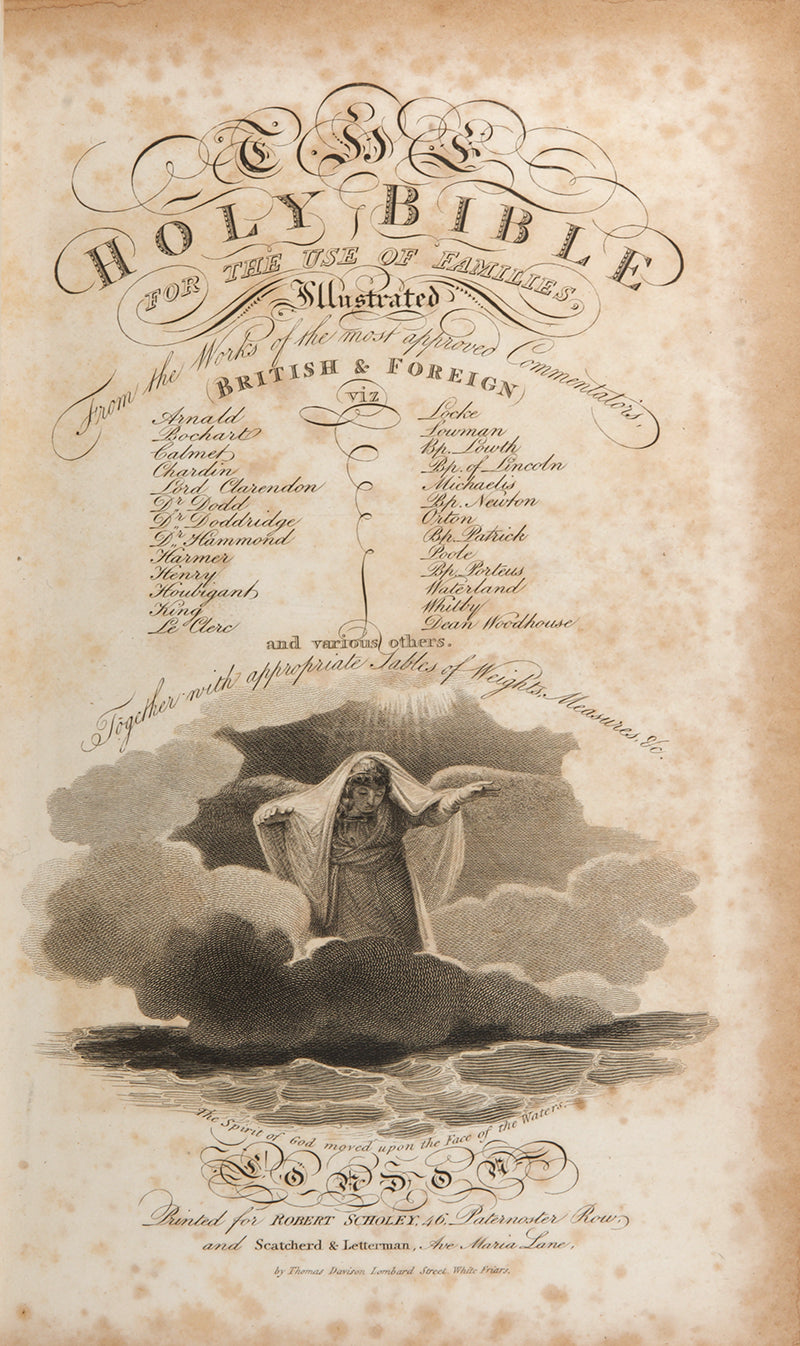 THE
HOLY BIBLE
FOR THE USE OF FAMILIES,
Illustrated
From the Works of the most approved Commentators,
(BRITISH & FOREIGN)
viz
Arnald
Bochart
Calmet
Chardin
Lord Clarendon
Dr. Dodd
Dr. Doddridge
Dr. Hammond
Harmer
Henry
Houbigant
King
Le Clerc
Locke
Lowman
Bp. Lowth
Bp. of Lincoln
Michaelis
Bp. Newton
Orton
Bp. Patrick
Poole
Bp. Porteus
Waterland
Whitby
Dean Woodhouse
and various others.
Together with appropriate Tables of Weights, Measures, &c.
The Spirit of God moved upon the Face of the Waters.
LONDON
Printed for ROBERT SCHOLEY, 46, Paternoster Row,
and Scatcherd & Letterman, Ave Maria Lane,
by Thomas Davison Lombard Street, White Friars.